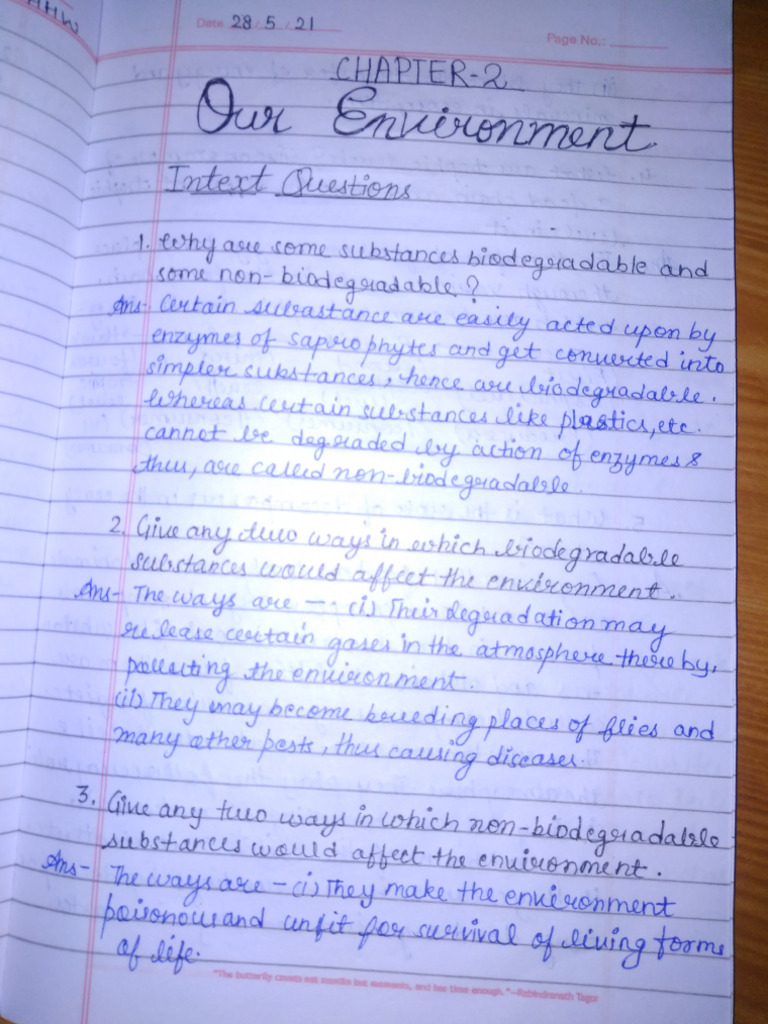 HHW
Date 28/5/21
Page No.:
CHAPTER-2
Our Environment
Intext Questions
1. Why are some substances biodegradable and
some non-biodegradable?
Ans- Certain subrastance are easily acted upon by
enzymes of saprophytes and get converted into
simpler substances, hence are biodegradable.
Whereas certain substances like plastics, etc.
cannot be degraded by action of enzymes &
thus, are called non-biodegradable.
2. Give any two ways in which biodegradable
substances would affect the environment.
Ans- The ways are – (i) Their degradation may
release certain gases in the atmosphere thereby,
polluting the environment.
(ii) They may become breeding places of flies and
many other pests, thus causing diseases.
3. Give any two ways in which non-biodegradable
substances would affect the environment.
Ans- The ways are – (i) They make the environment
poisonous and unfit for survival of living forms
of life.
"The butterfly counts not months but moments, and has time enough."–Rabindranath Tagor